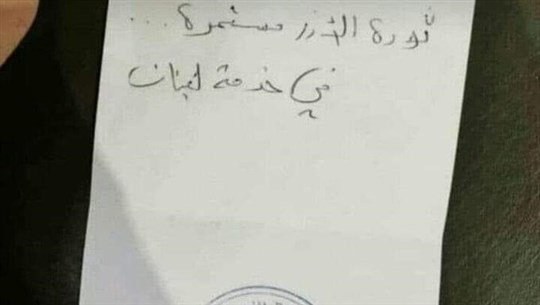 ثورة الأرز مستمرة...
في خدمة لبنان